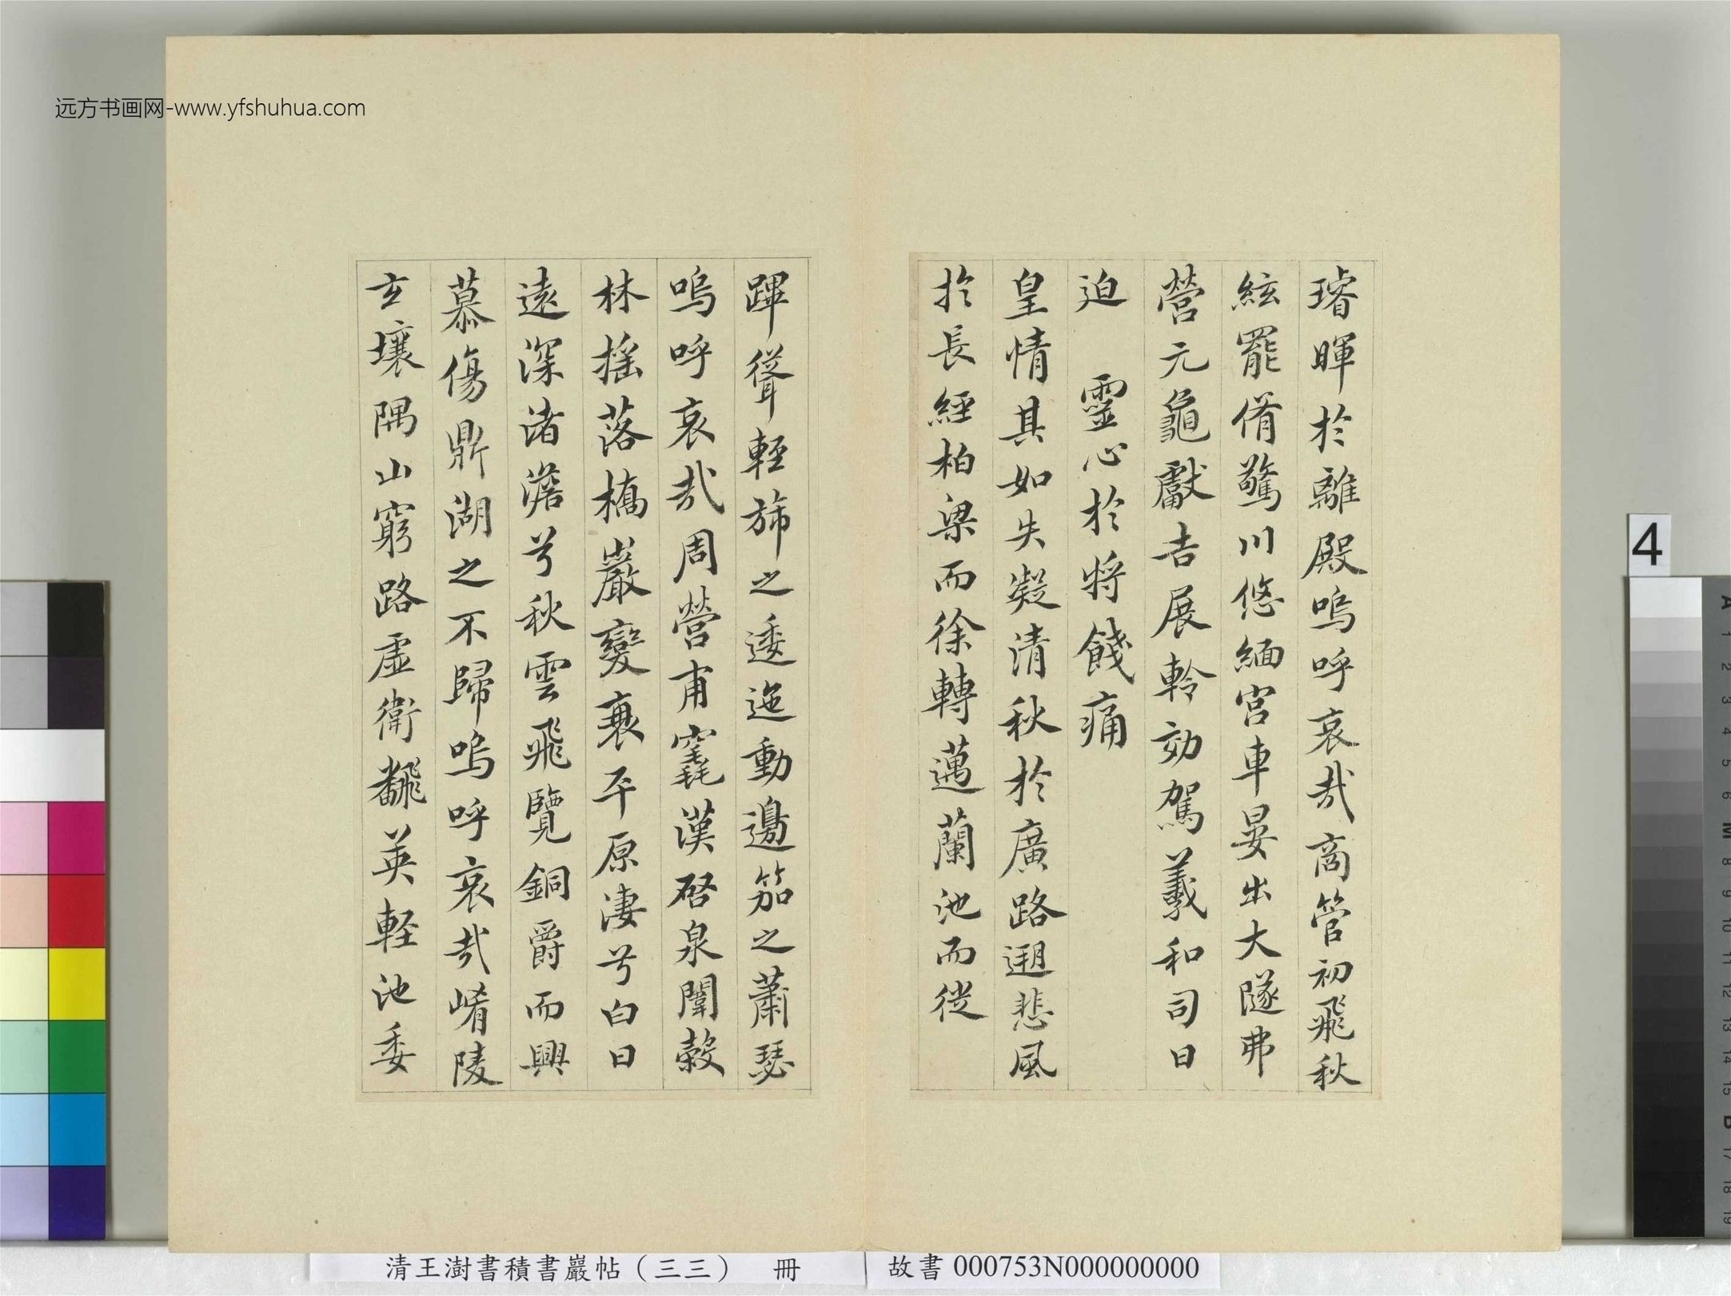 璿暉於離殿嗚呼哀哉商管初飛秋
絃罷脩驚川悠緬宮車晏出大隧弗
營元龜獻吉展軨効駕羲和司日
迫 靈心於將餞痛
皇情其如失凝清秋於廣路遡悲風
於長經柏梁而徐轉邁蘭池而從
蹕聳輕旆之逶迤動邊笳之蕭瑟
嗚呼哀哉周營甫竁漢啓泉闈榖
林摇落橋巖變衰平原淒兮白日
遠深渚澹兮秋雲飛覽銅爵而興
慕傷鼎湖之不歸嗚呼哀哉崤陵
玄壤隅山窮路虛衛飜英輕池委
远方书画网-www.yfshuhua.com
4
清王澍書積書巖帖（三三） 冊
故書 000753N000000000